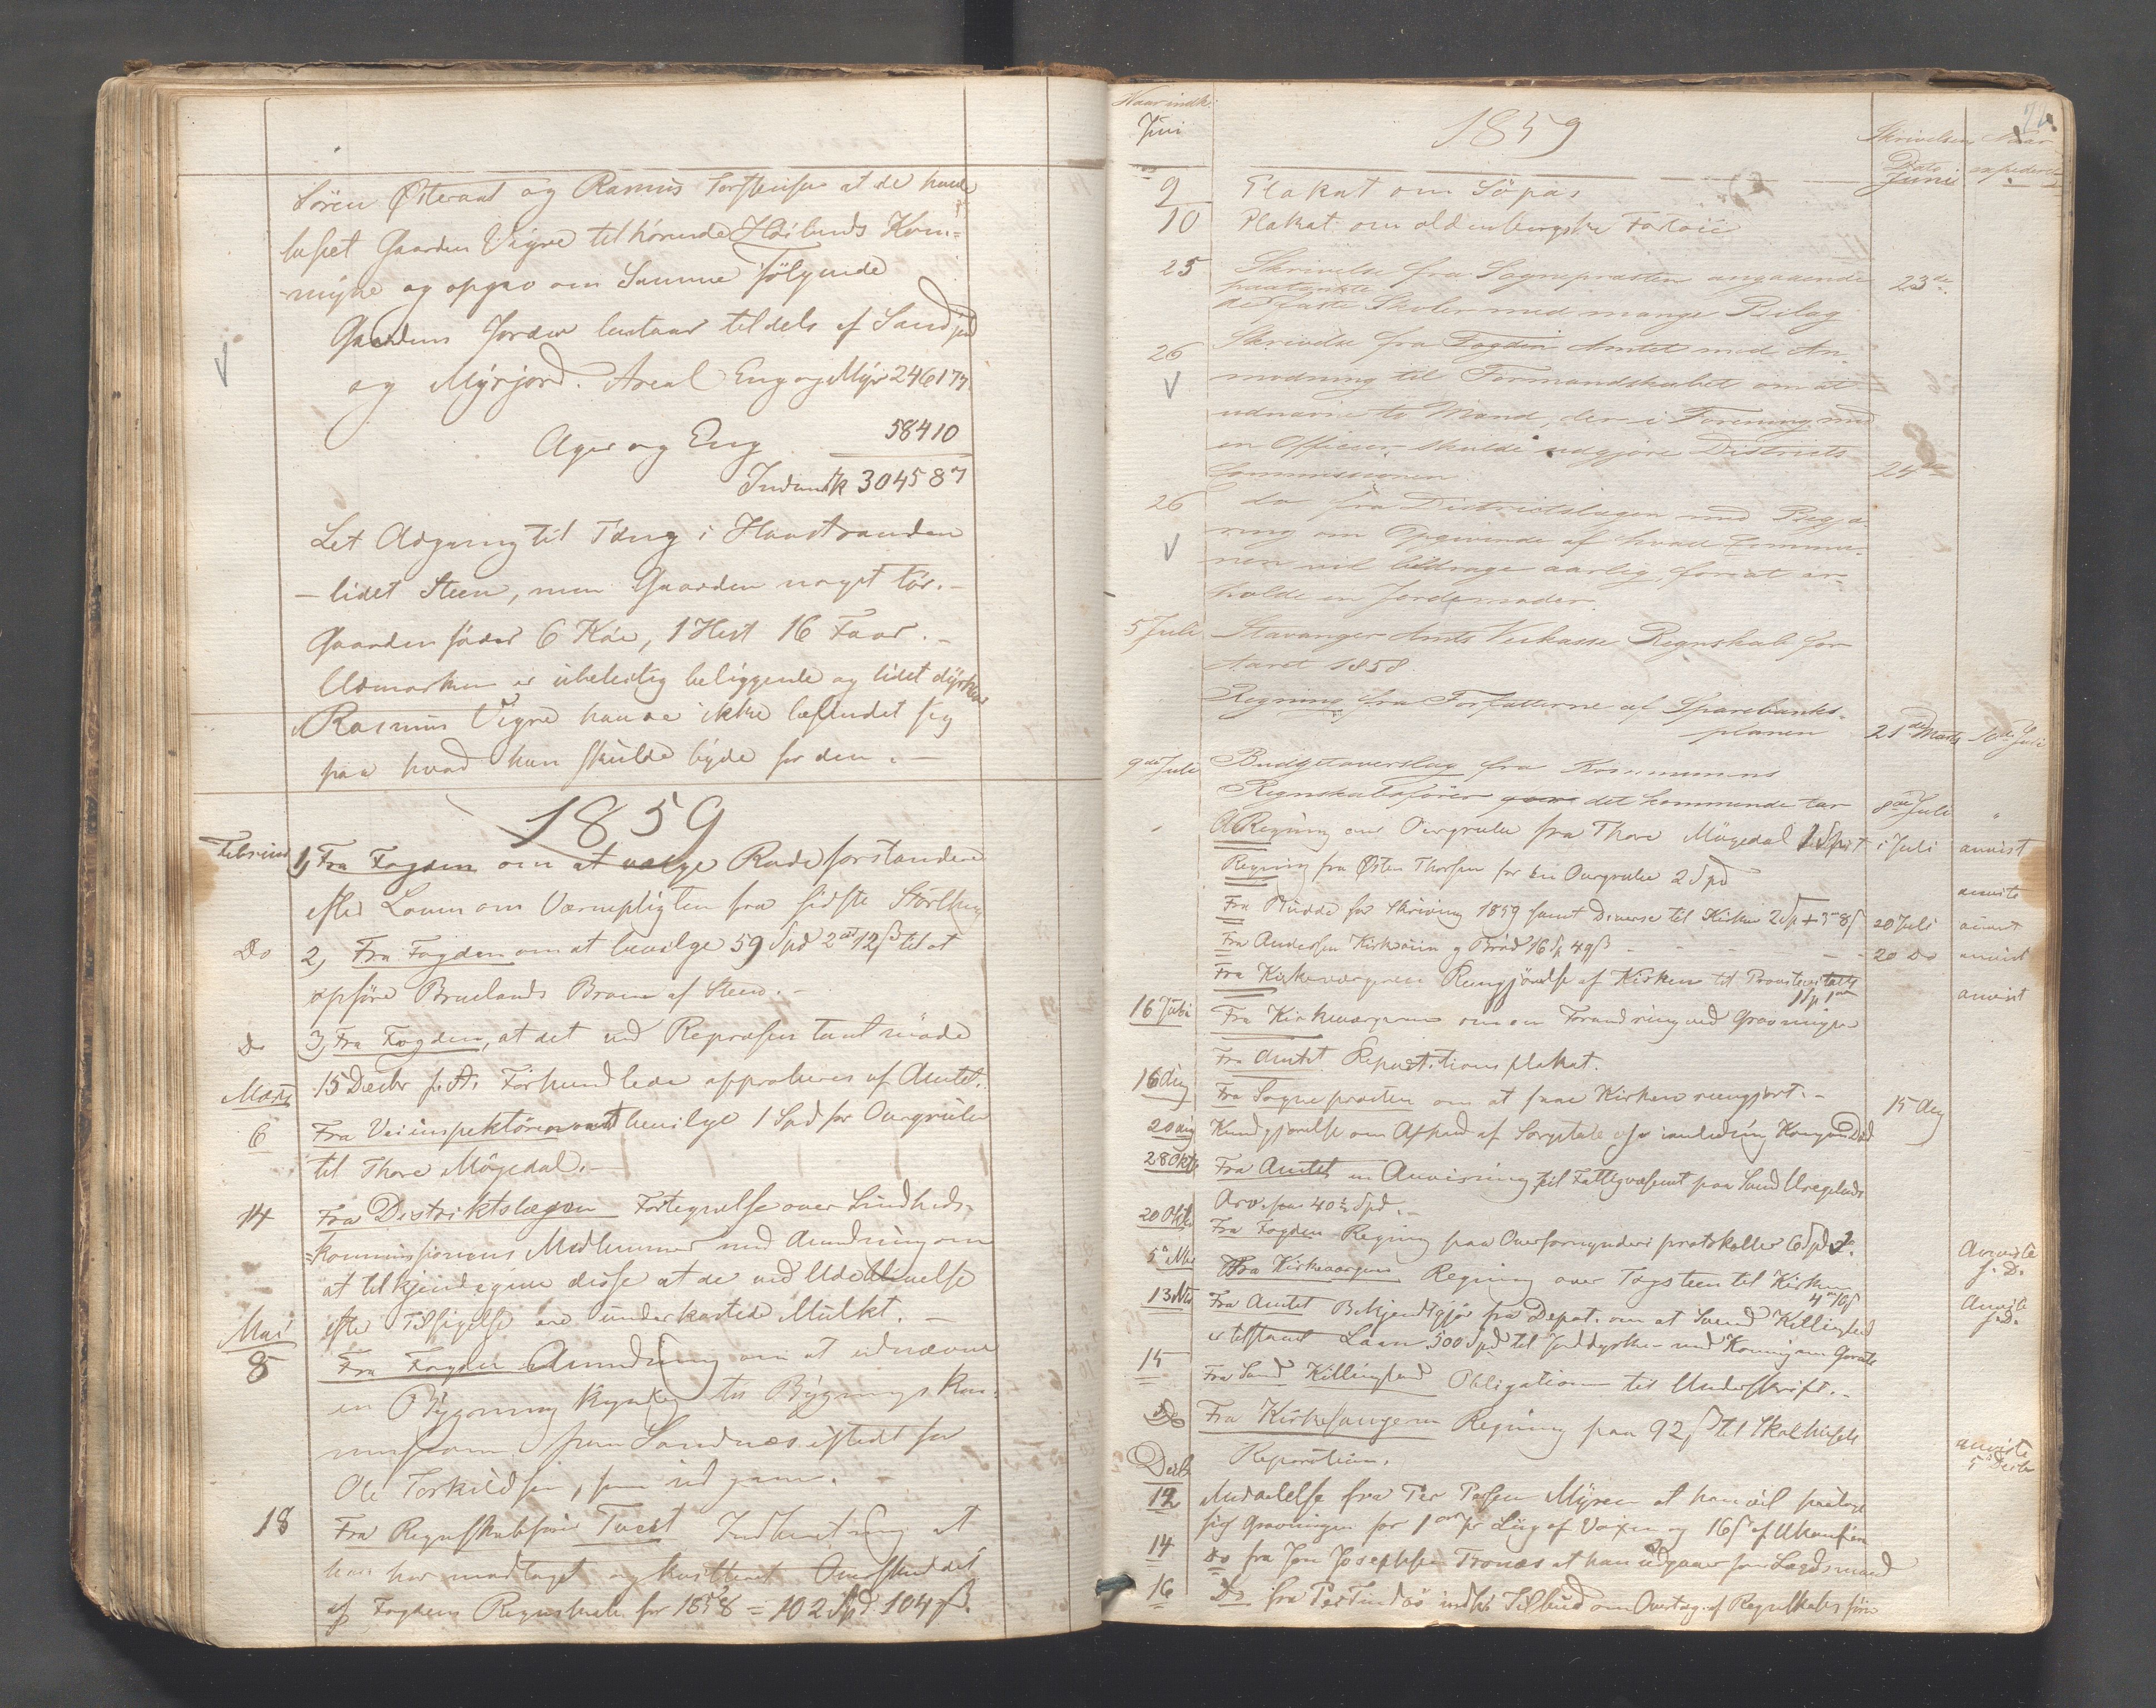 Sören Østeraat og Rasmus Torstensen at de havde
besiet Gaarden Vigre tilhörende Höilands Kom-
mune og opgav om Samme Fölgende
Gaardens Jorder bestaar tildels af Sandjord
og Myrjord. Areal Eng og Myr 246177
Ager og Eng 58410
304587
Let Adgang til Tang i Havstranden
- lidet Steen, men Gaarden noget tör. -
Gaarden föder 6 Köer, 1 Hest 16 Faar. -
Udmarken er ubeleilig beliggende og lidet dyrkbar
Rasmus Vigre havde ikke befundet sig
paa hvad han skulde byde for den. -
1859
Februar 1, Fra Fogden om at vælge Rodeforstandere
efter Loven om Værnepligten fra sidste Storthing
Do 2, Fra Fogden om at bevilge 59 Spd 2 ort 12 ß til at
opföre Bruelands Broen af Steen. -
Do 3, Fra Fogden, at det ved Repræsentantmöde
15 Decbr f. A. Forhandlede approberes af Amtet.
Marts
6 Fra Veiinspektören at bevilge 1 Spd for Ourgrube
til Thore Mögedal. -
14 Fra Distriktslægen Fortegnelse over Sundheds-
kommissionens Medlemmer med Anmodning om
at tilkjendegive disse at de ved Udeblivelse
efter Tilsigelse ere underkastede Mulkt. -
Mai
8 Fra Fogden Anmodning om at udnævne
en Bygningskyndig til Bygningskom-
mission paa Sandnæs istedet for
Ole Torkildsen, som udgaar.
18 Fra Regnskabsförer Tvedt Indberetning at
han har modtaget og Overskuddet
af Fogdens Regnskab for 1858 = 102 Spd 104 ß.
Naar indk:
Juni
1859
Skrivelsens Dato Juni
Naar expederet
9 Plakat om Söpas
10 Plakat om oldenburgske Fartöie
25 Skrivelse fra Sognepræsten angaaende
paatænkte
de faste Skoler med mange Bilag 23de
26 Skrivelse fra Fogden Amtet med An-
modning til Formandskabet om at
udnævne to Mænd, der i Forening med
en Officier skulde udgjöre Districts
Commissionen 24de
26 do fra Districtslægen med Begjæ-
ring om Opgivende af hvad Commu-
nen vil bidrage aarlig, for at er-
holde en Jordemoder.
5 Juli Stavanger Amts Veikasse Regnskab for
Aaret 1858.
Regning fra Forfatterne af Sparebanks-
planen 21de Marts 10de Juli
9de Juli Budgetoverslag fra Kommunens
Regnskabsförer det kommende Aar 8de Juli "
Regning om Ourgrube fra Thore Mögedal 1 Spd i Juli anvist
Regning fra Østen Thorsen for En Ourgrube 2 Spd anviste
Fra Budde for Skriving 1859 samt Diverse til Kirken 20 Juli anvist
Fra Andersen Kirkeviin og Bröd 16 Sp 49 ß - - - 20 Do anvist
Fra Kirkeværgeren Rengjörelse af Kirken til Provstevisitats
1 Sp 1 ort anvist
16 Juli Fra Kirkeværgeren om en Forandring ved Gravningen
Fra Amtet Repartitions plakat.
16 Aug Fra Sognepræsten om at faae Kirken rengjort. - 15 Aug
20 Aug Kundgjörelse om Afhold af Sorgetale i anledning Kongens Död
28 Oktb Fra Amtet en Anvisning til Fattigvæsenet paa
Arv stor 40 ½ Spd. -
20 Oktb Fra Fogden Regning paa Overformynderi protokoller 6 Spd
Fra Kirkeværgeren Regning over Tagsteen til Kirken
Anviste s. D.
13 Nvb Fra Amtet Bekjendtgjör fra Depat. om at Svend Killingland
er tilstaaet Laan 500 Spd til Jorddyrkn- Anviste s. D.
15 Fra Svend Killingland Obligation til Underskrift. -
Do Fra Kirkesangeren Regning paa 92 ß til Skolehusets
Reparation. anviste 5 Decbr
Decbr
12 Meddelelse fra Per Myren at han vil paatage
sig Gravningen for 1 ort pr Liig af Voxen og 16 ß af Ukonfirm
14 Do fra Jon Josephsen Tronæs at han udgaar som Lægdsmand
16 Do fra Per Tindö indk: Tilbud om Overtag. af Regnskabsför